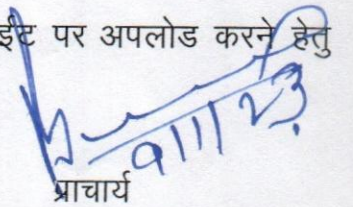 ईट पर अपलोड करने हेतु
9/11/23
प्राचार्य